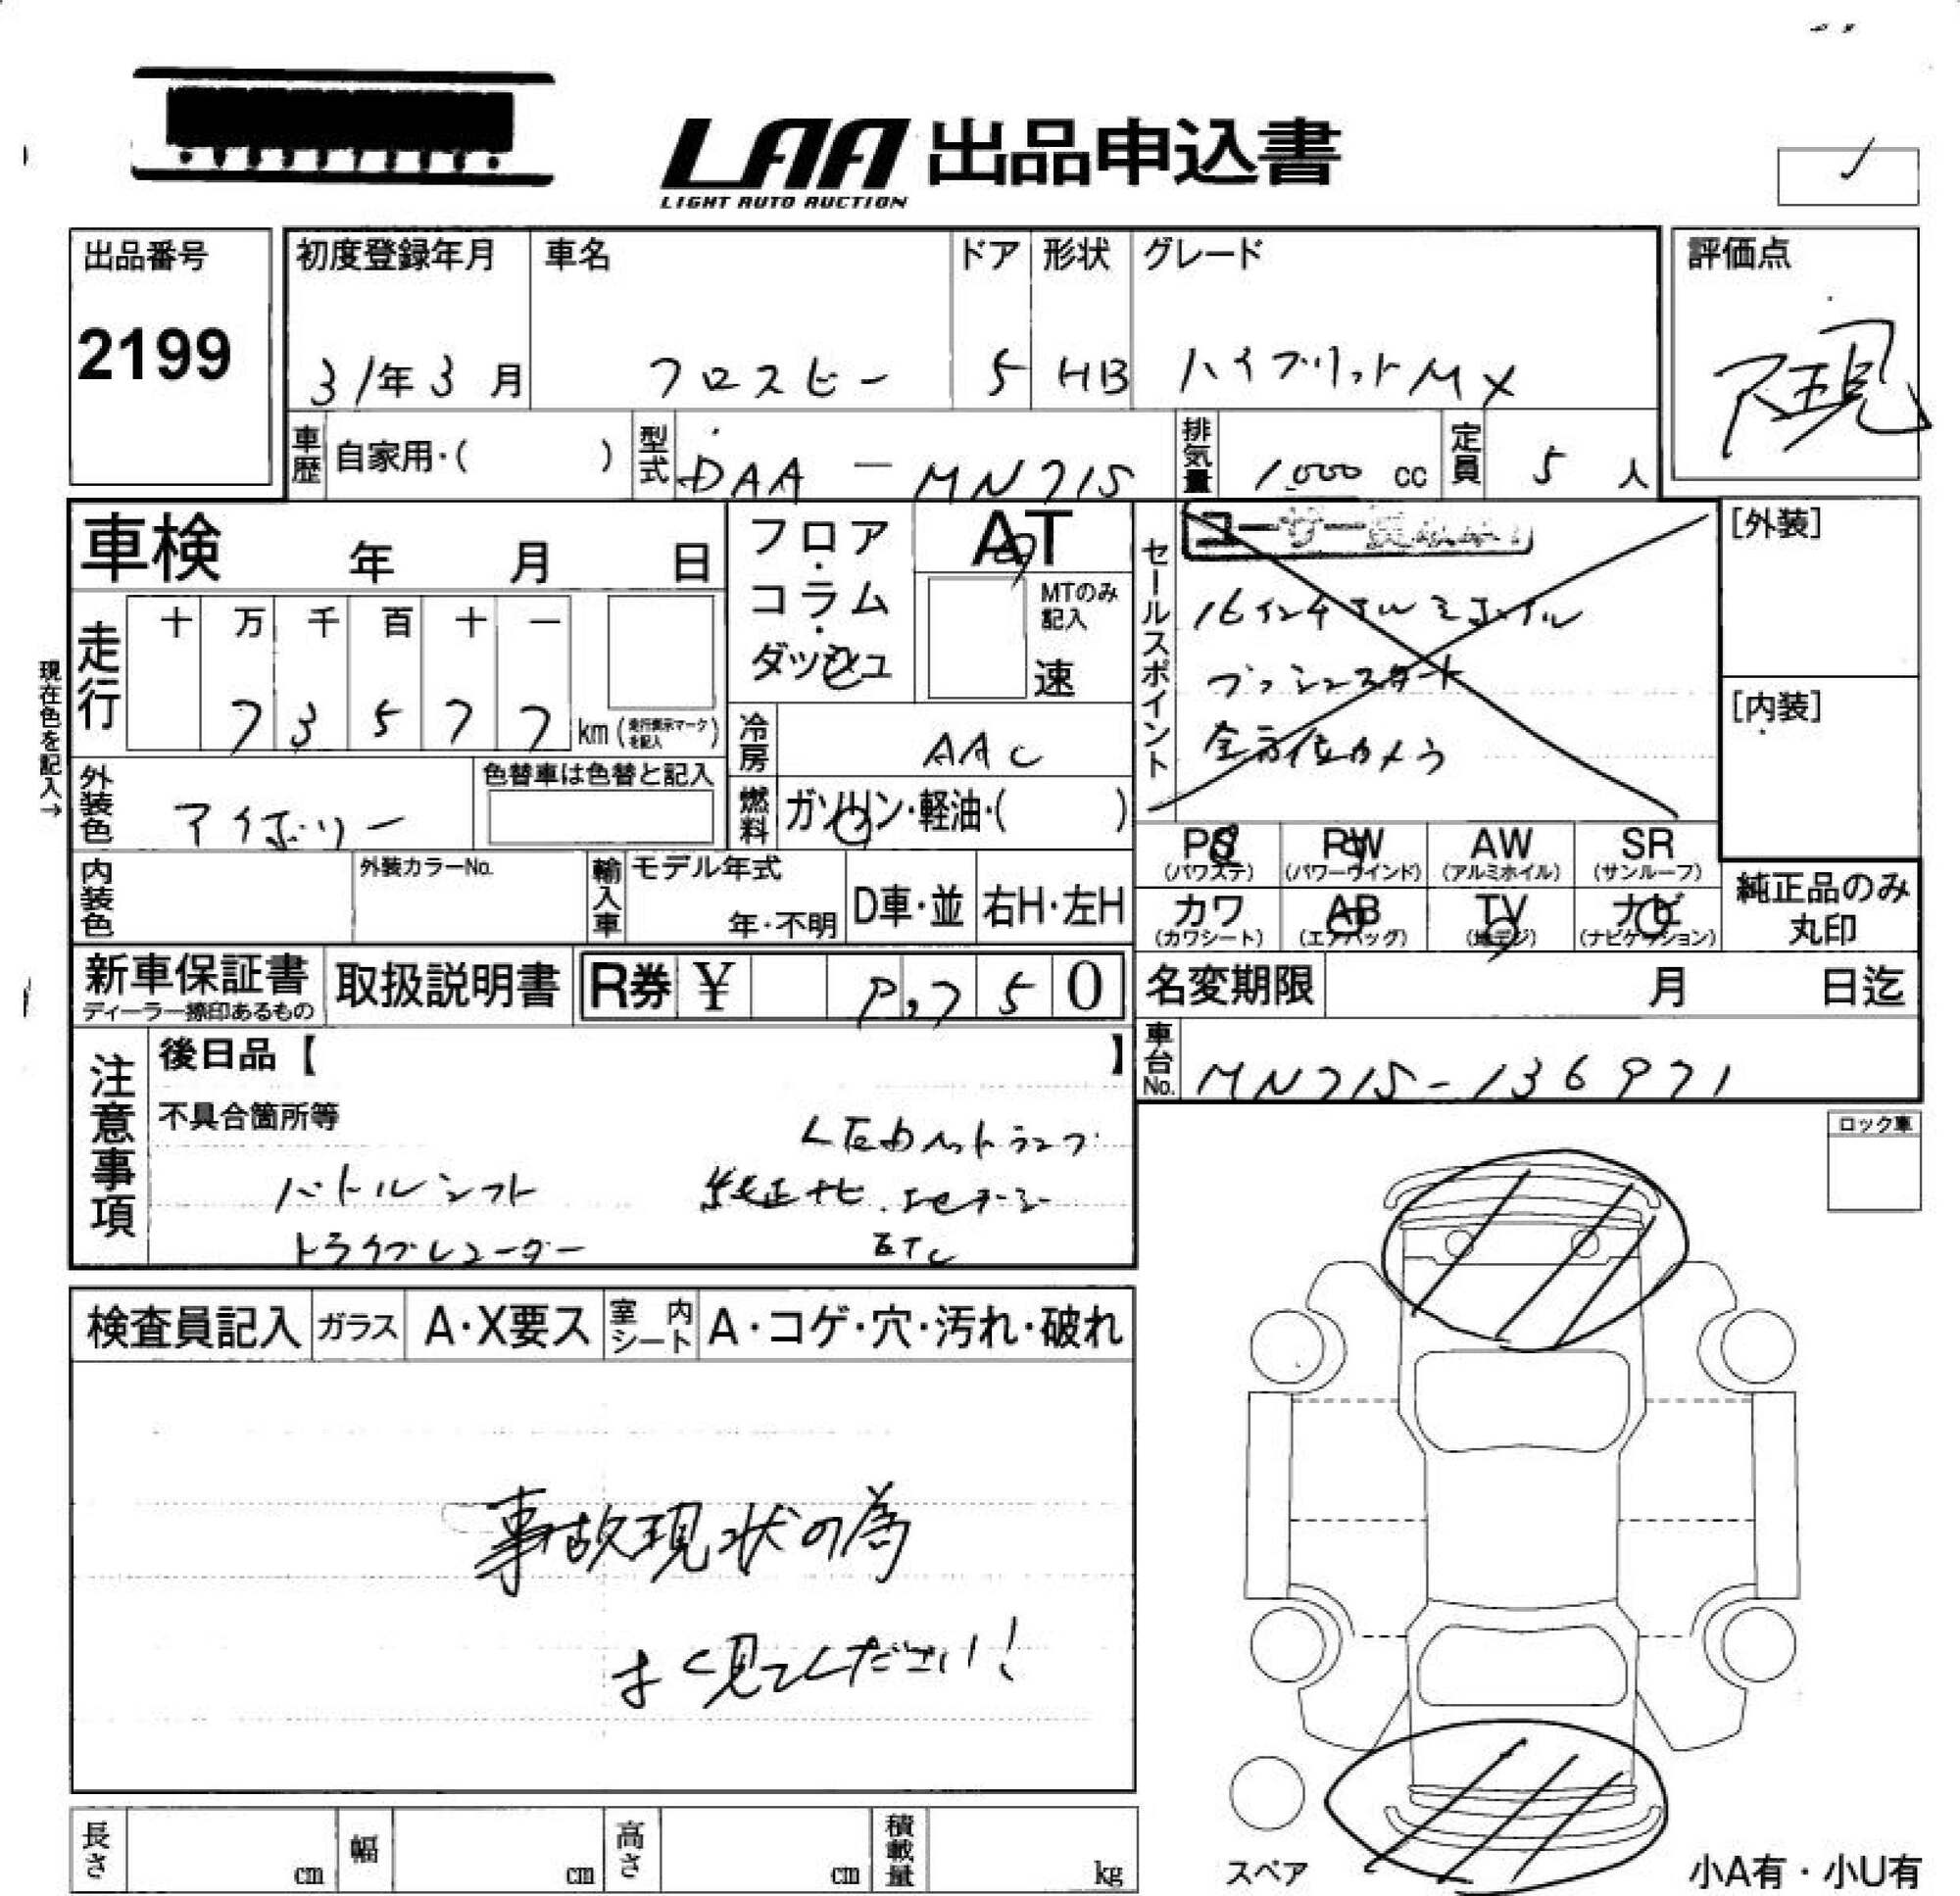 LAA 出品申込書
LIGHT AUTO AUCTION
出品番号
2199
初度登録年月
31年3月
車名
クロスビー
ドア
5
形状
HB
グレード
ハイブリットMX
評価点
現
車歴 自家用・( )
型式 DAA-MN71S
排気量 1,000 cc
定員 5 人
車検 年 月 日
フロア・コラム・ダッシュ
AT
MTのみ記入
速
現在色を記入→
走行
十 万 千 百 十 一
7 3 5 7 7 km (走行表示マークを記入)
冷房 AAC
外装色 アイボリー
色替車は色替と記入
燃料 ガソリン・軽油・( )
セールスポイント
16インチアルミホイル
プッシュスタート
全方位カメラ
[外装]
[内装]
PS (パワステ)
PW (パワーウインド)
AW (アルミホイル)
SR (サンルーフ)
カワ (カワシート)
AB (エアバッグ)
TV (地デジ)
ナビ (ナビゲーション)
純正品のみ丸印
内装色
外装カラーNo.
輸入車
モデル年式
年・不明
D車・並
右H・左H
新車保証書
ディーラー捺印あるもの
取扱説明書
R券 ¥ 9,750
名変期限 月 日迄
車台No. MN71S-136971
注意事項
後日品【 】
不具合箇所等
LEDヘットランプ
パトルシフト 純正ナビ
トライブレコーダー ETC
ロック車
検査員記入
ガラス A・X要ス
室内シート A・コゲ・穴・汚れ・破れ
事故現状の為
よく見てください!
長さ cm
幅 cm
高さ cm
積載量 kg
スペア
小A有・小U有